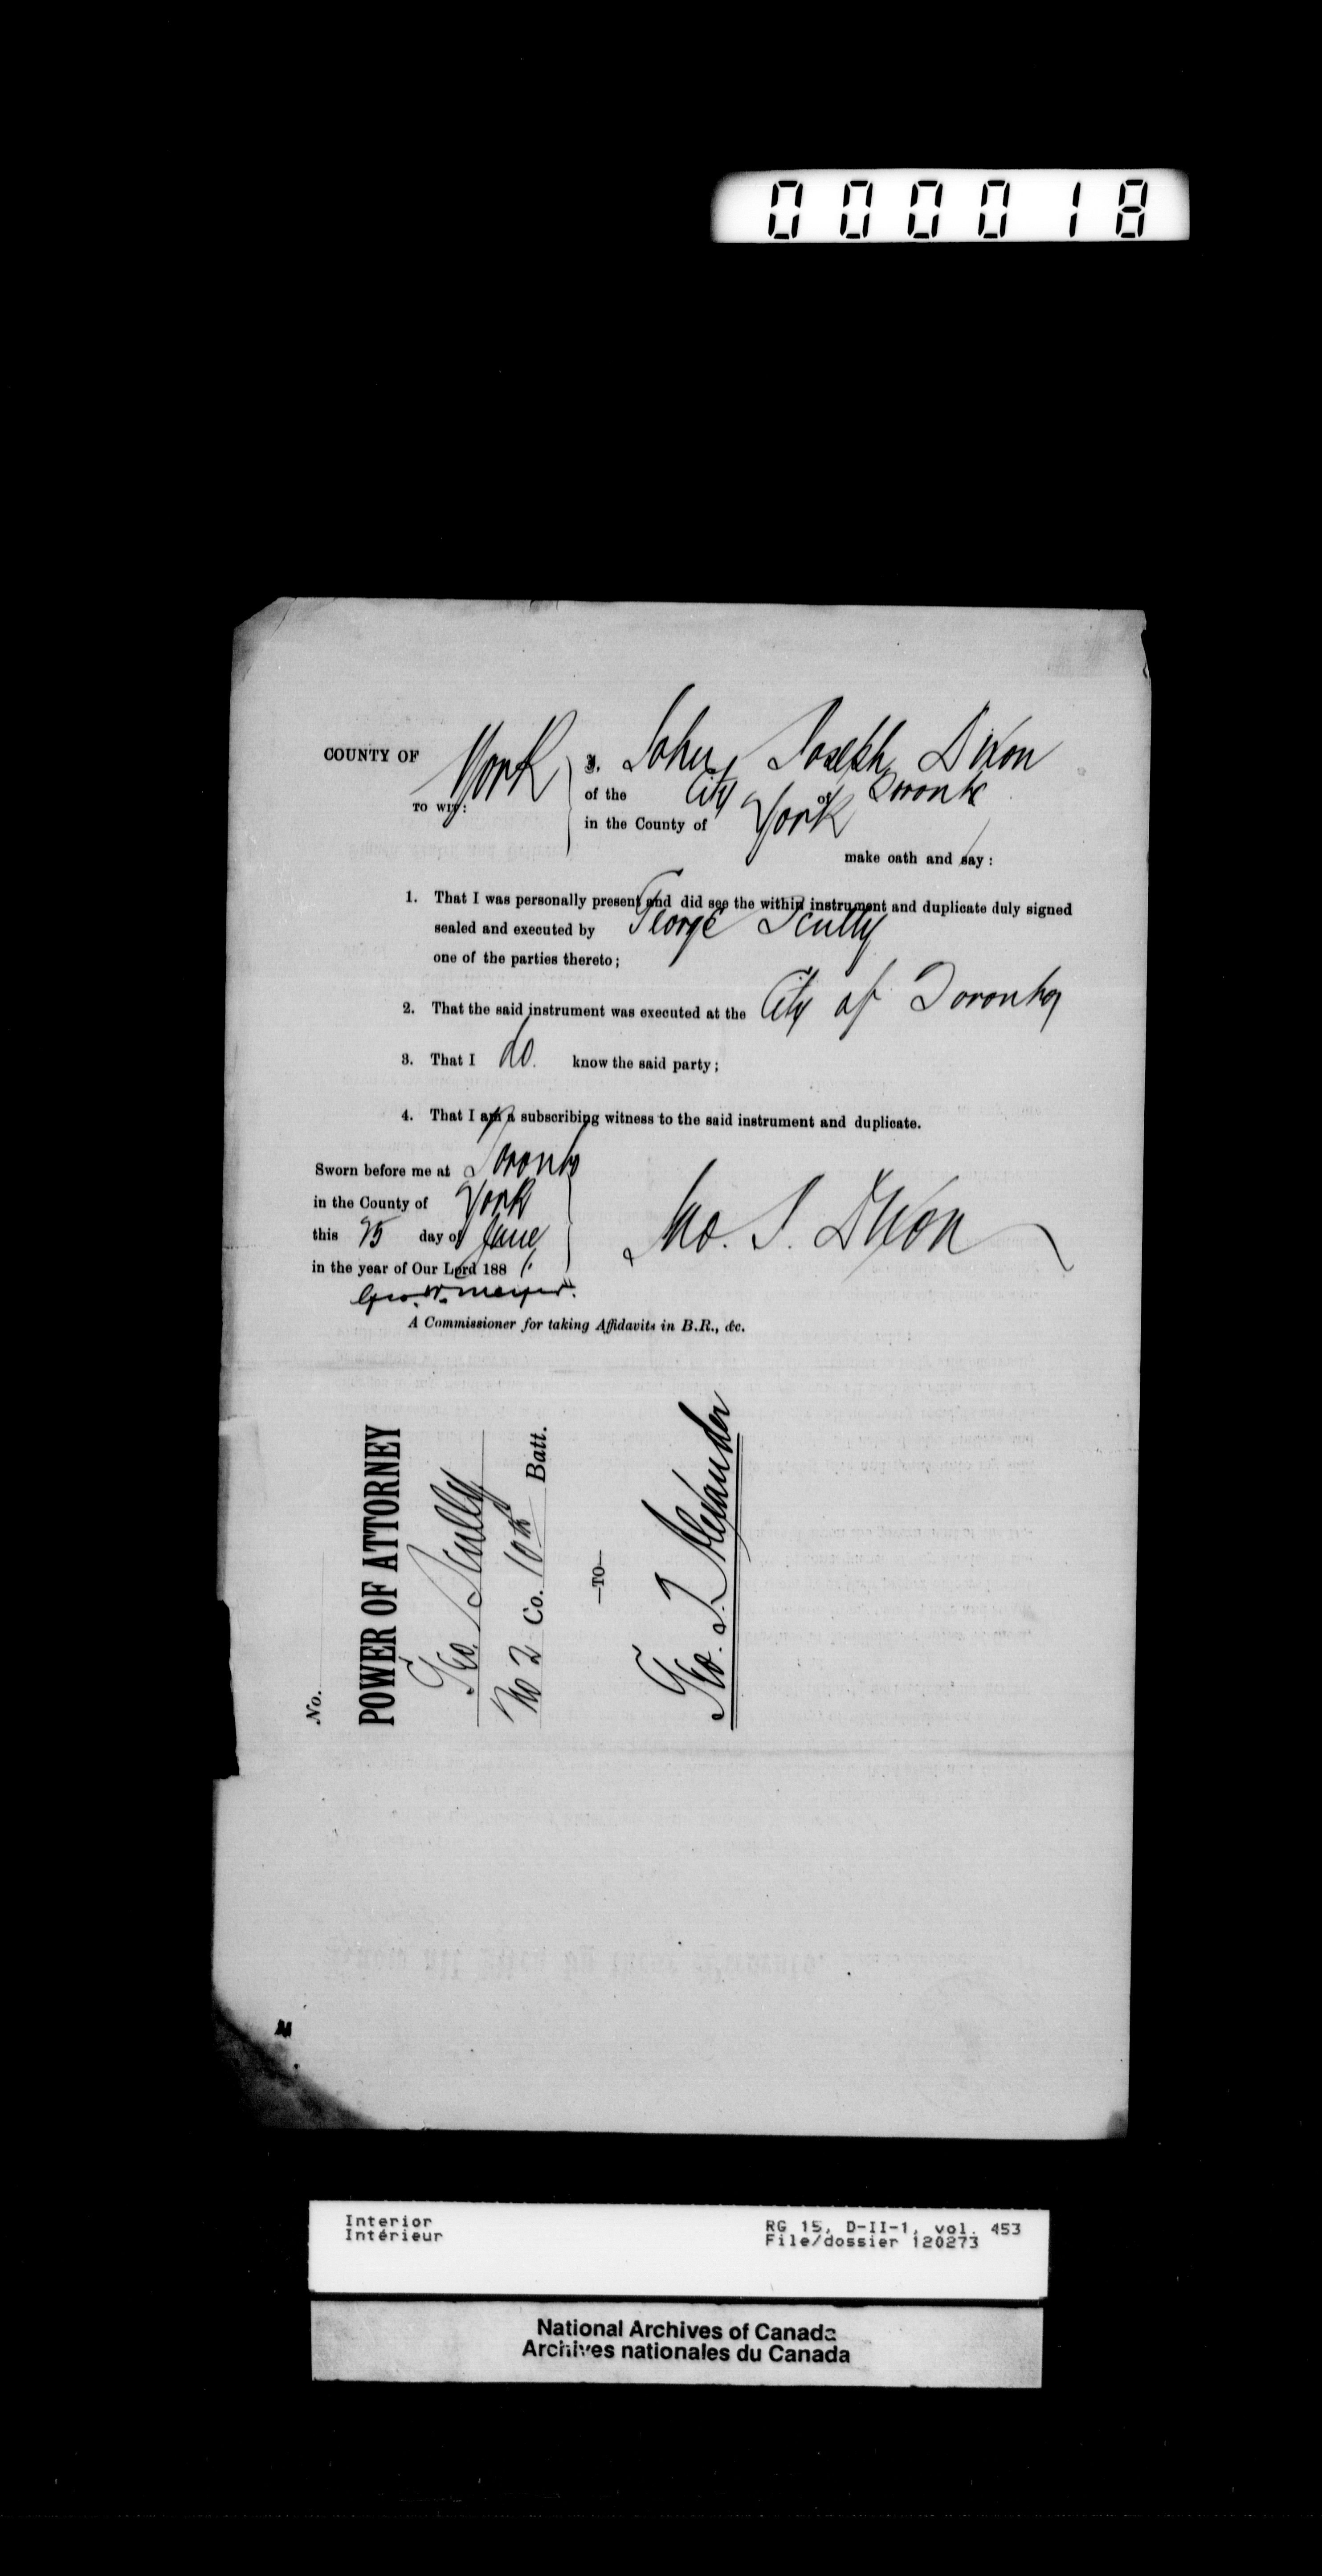 000018
COUNTY OF York
TO WIT:
I, John Joseph Dixon
of the City of Toronto
in the County of York
make oath and say:
1. That I was personally present and did see the within instrument and duplicate duly signed
sealed and executed by George Scully
one of the parties thereto;
2. That the said instrument was executed at the City of Toronto
3. That I do know the said party;
4. That I am a subscribing witness to the said instrument and duplicate.
Sworn before me at Toronto
in the County of York
this 25 day of June
in the year of Our Lord 188
Jno. J. Dixon
Geo. W.
A Commissioner for taking Affidavits in B.R., &c.
No.
POWER OF ATTORNEY
Geo. Scully
No 2 Co. 10th Batt.
—TO—
Geo. T. Alexander
Interior
Intérieur
RG 15, D-II-1, vol. 453
File/dossier 120273
National Archives of Canada
Archives nationales du Canada